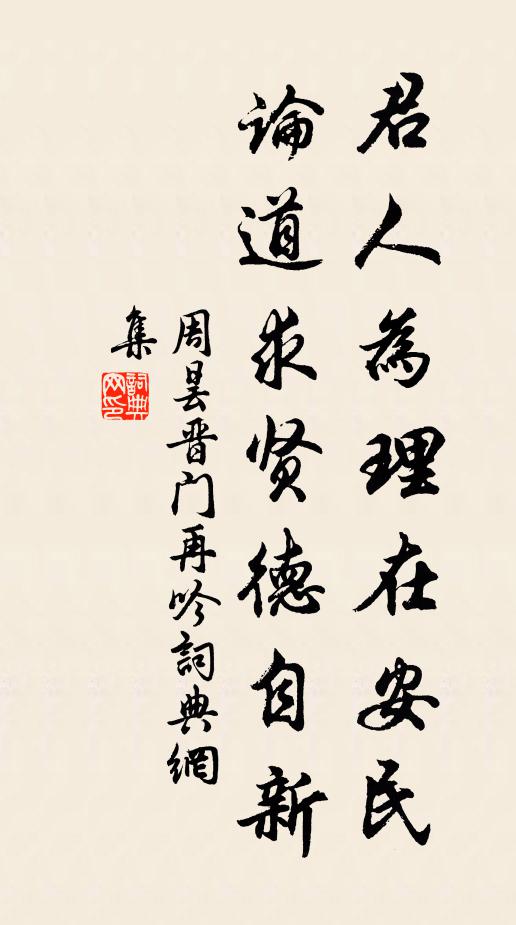 君人為理在安民
論道求贤德自新
周昙晋门再吟詞典網
集
詞典
网印